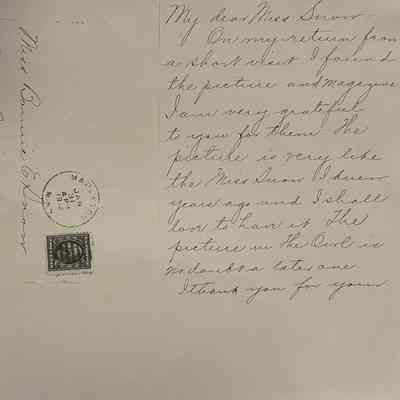 My dear Miss Snow
On my return from
a short visit I found
the picture and magazine
I am very grateful
to you for them The
picture is very like
the Miss Snow I knew
years ago and I shall
love to have it The
picture in The Owl is
no doubt a later one
I thank you for your
Miss Bonnie E Snow
JAN
31
4 PM
MINN.